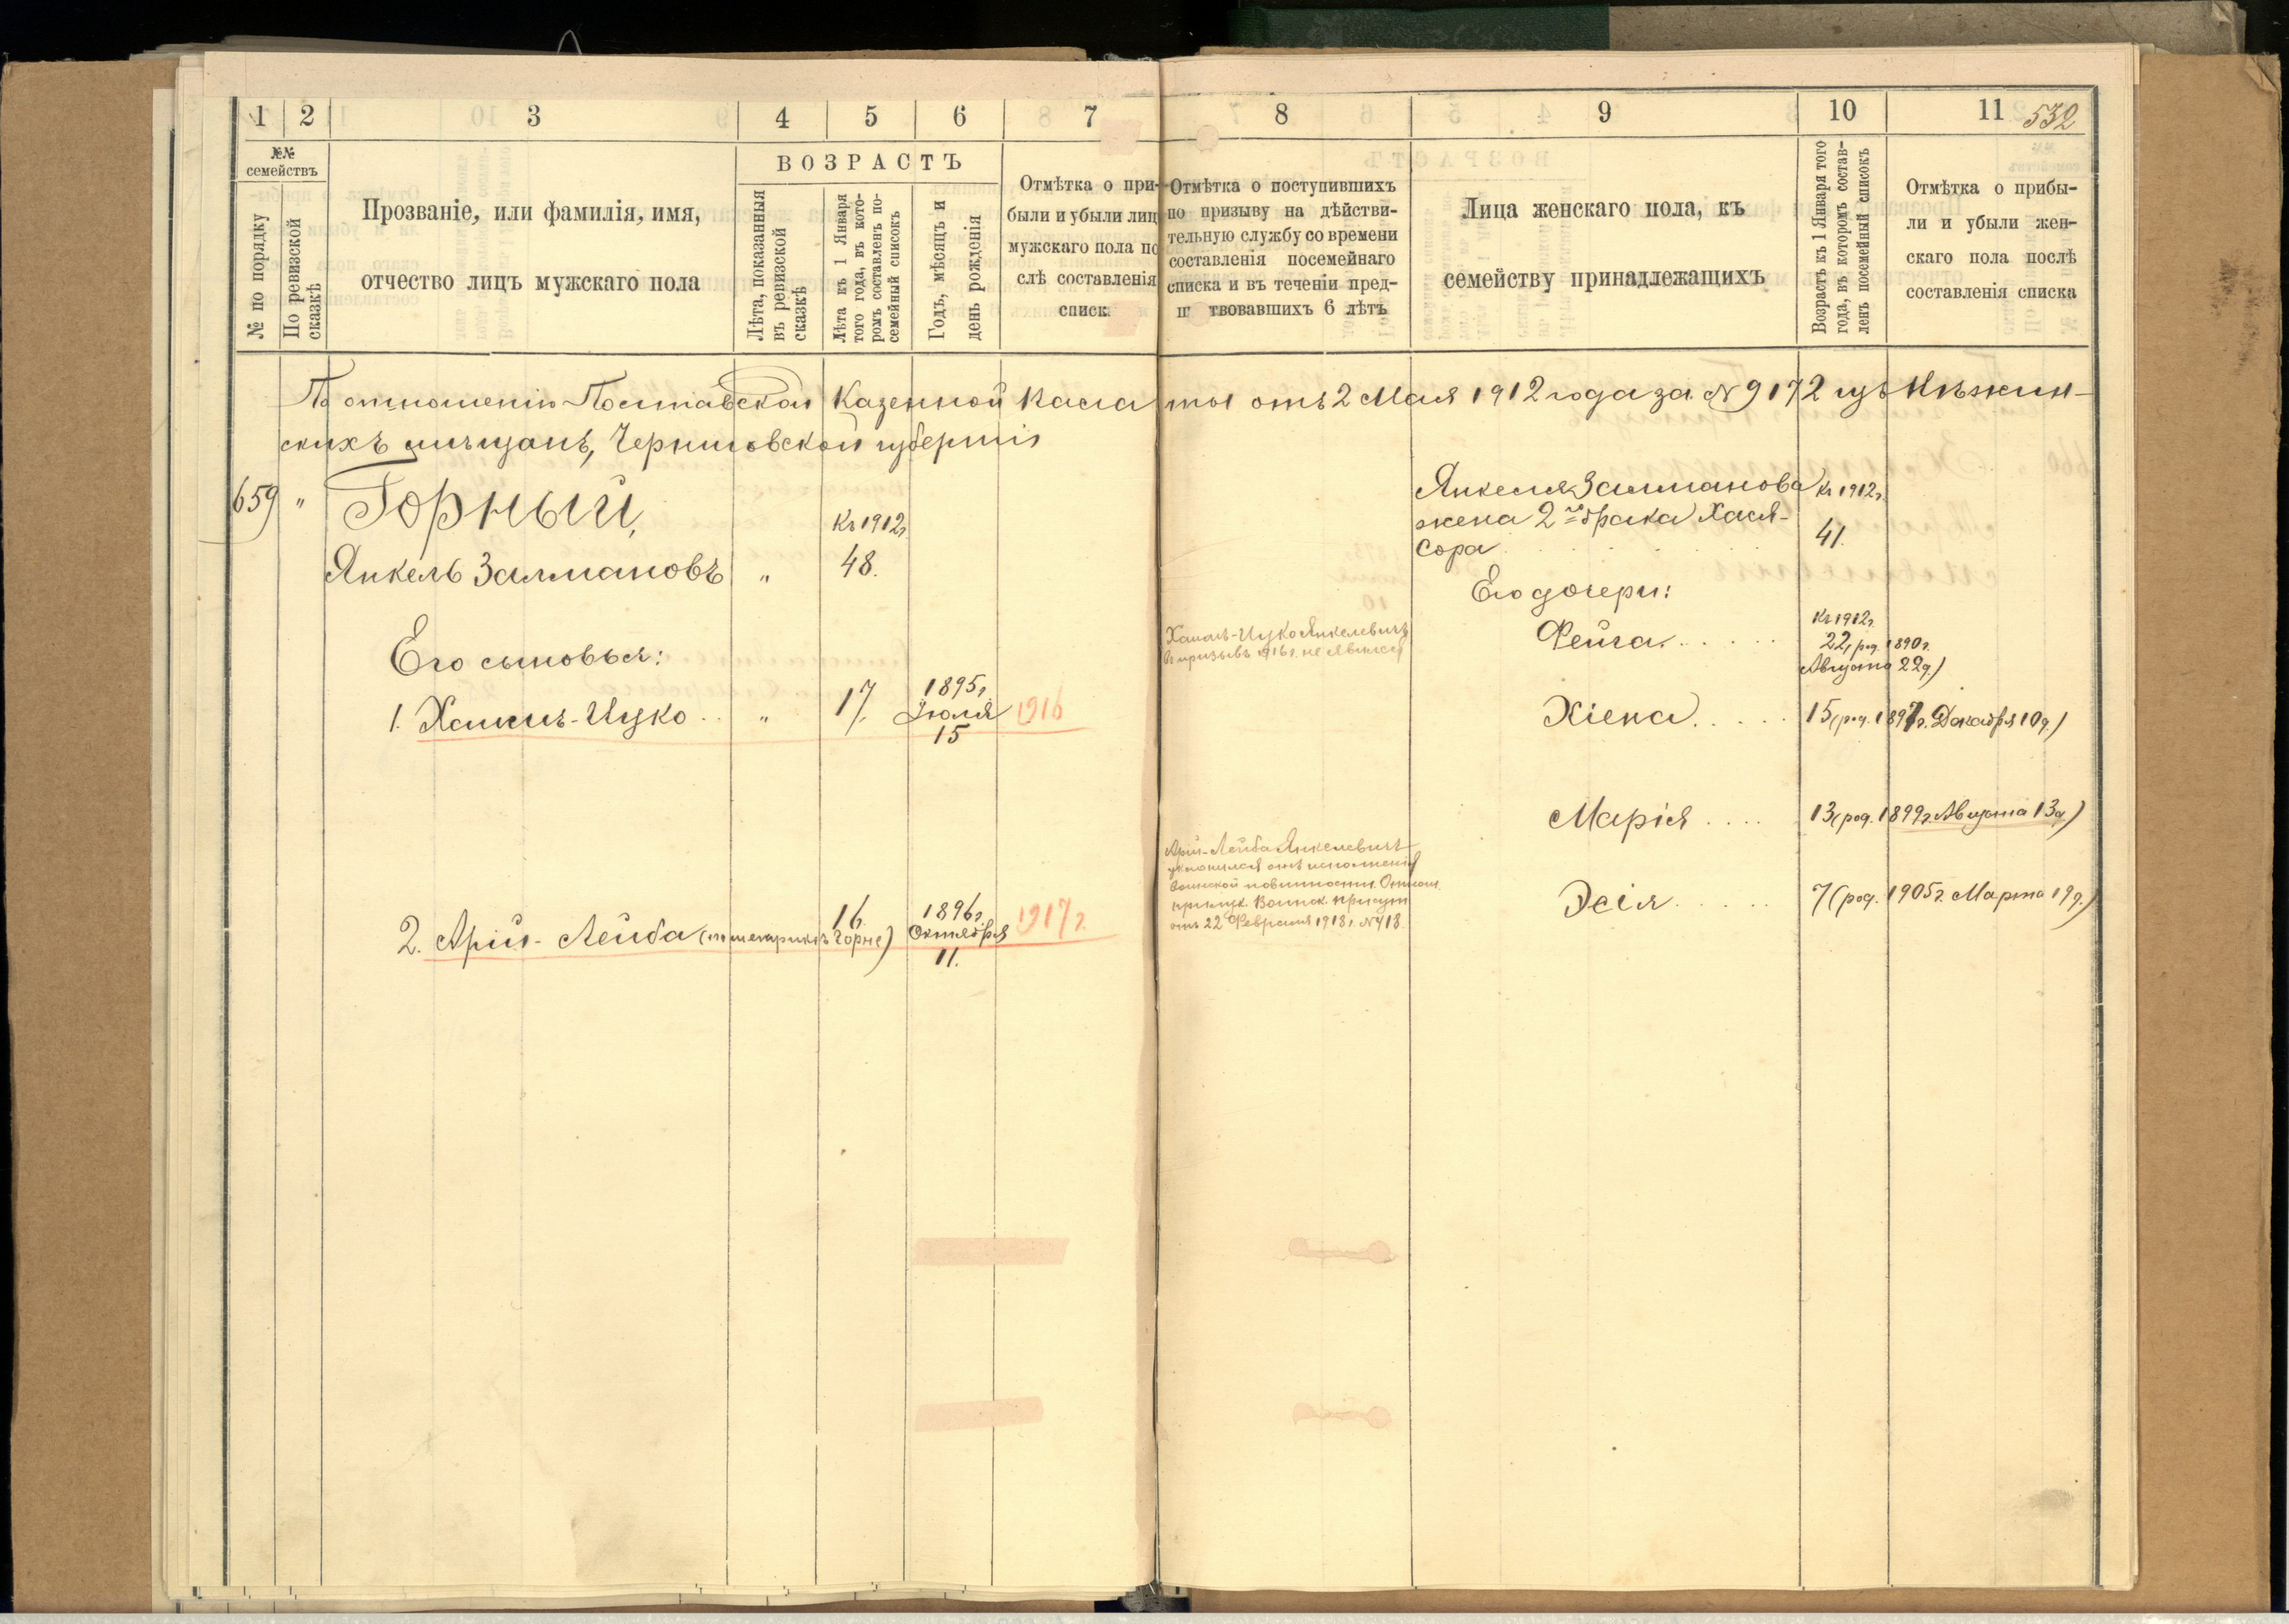 1 2 3 4 5 6 7
№№ семействъ
№ по порядку
По ревизской сказкѣ
Прозваніе, или фамилія, имя,
отчество лицъ мужскаго пола
ВОЗРАСТЪ
Лѣта, показанныя
въ ревизской
сказкѣ
Лѣта къ 1 Января
того года, въ кото-
ромъ составленъ по-
семейный списокъ
Годъ, мѣсяцъ и
день рожденія
Отмѣтка о при-
были и убыли лиц
мужскаго пола по
слѣ составленія
списк
8 9 10 11 532
Отмѣтка о поступившихъ
по призыву на дѣйстви-
тельную службу со времени
составленія посемейнаго
списка и въ теченіи пред-
ш твовавшихъ 6 лѣтъ
Лица женскаго пола, къ
семейству принадлежащихъ
Возрастъ къ 1 Января того
года, въ которомъ состав-
ленъ посемейный списокъ
Отмѣтка о прибы-
ли и убыли жен-
скаго пола послѣ
составленія списка
По отношенію Полтавской Казенной Палаты отъ 2 Мая 1912 года за № 9172 изъ Нѣжин-
скихъ мѣщанъ, Черниговской губерніи
659 " Горный,
Къ 1912 г.
Янкель Залмановъ " 48.
Его сыновья:
1. Хаимъ-Ицко .. " 17. 1895 г. Іюля 15 1916
2. Арій-Лейба (по метрикѣ Горне) 16. 1896 г. Октября 11. 1917 г.
Хаимъ-Ицко Янкелевичъ
въ призывъ 1916 г. не явился
Арій-Лейба Янкелевичъ
уклонился отъ исполненія
воинской повинности.
Воинск. присут.
отъ 22 Февраля 1918 г. № 418.
Янкеля Залманова Къ 1912 г.
жена 2го брака Хася-
Сора 41.
Его дочери:
Къ 1912 г.
Фейга 22, род. 1890 г.
Августа 22 д.)
Хіена 15 (род. 1897 г. Декабря 10 д.)
Марія 13 (род. 1899 г. Августа 13 д.)
Эсія 7 (род. 1905 г. Марта 19 д.)